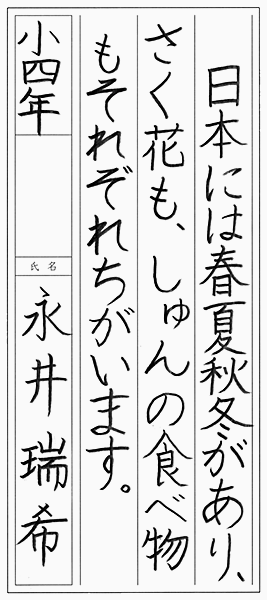 日本には春夏秋冬があり、
さく花も、しゅんの食べ物
もそれぞれちがいます。
小四年
氏名
永井瑞希